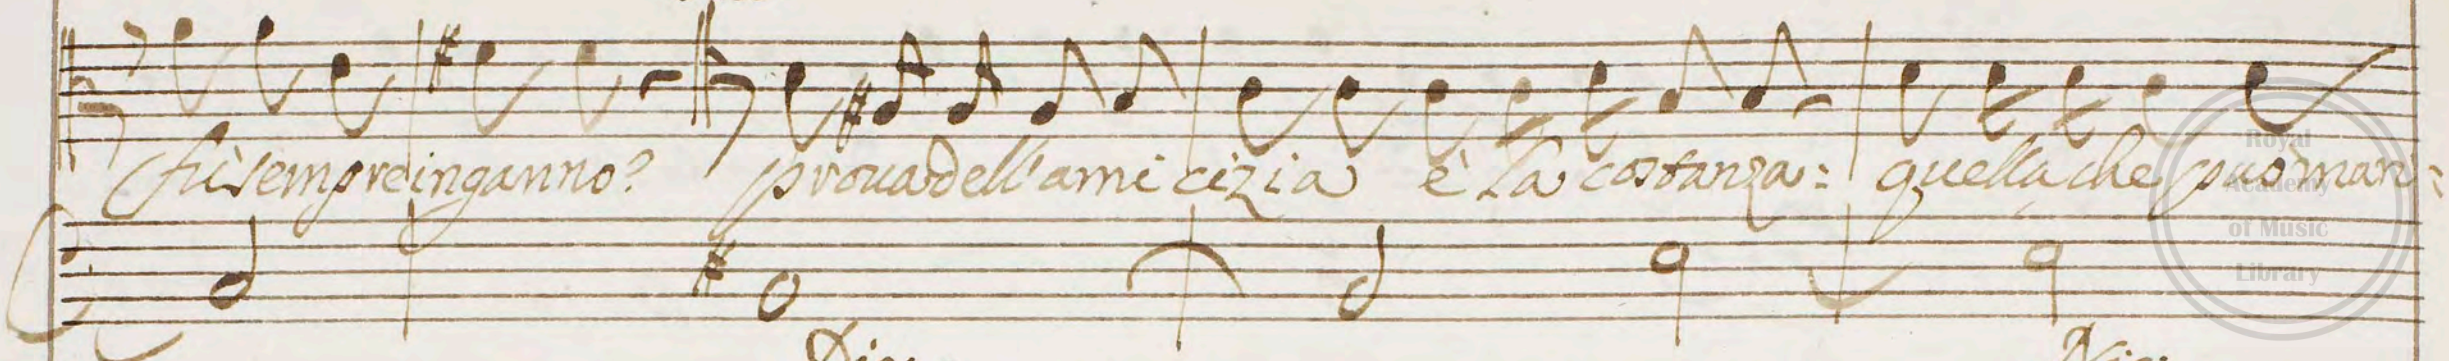 fù sempre inganno? prova dell'amicizia è la costanza: quella che può man:
Royal
Academy
of Music
Library